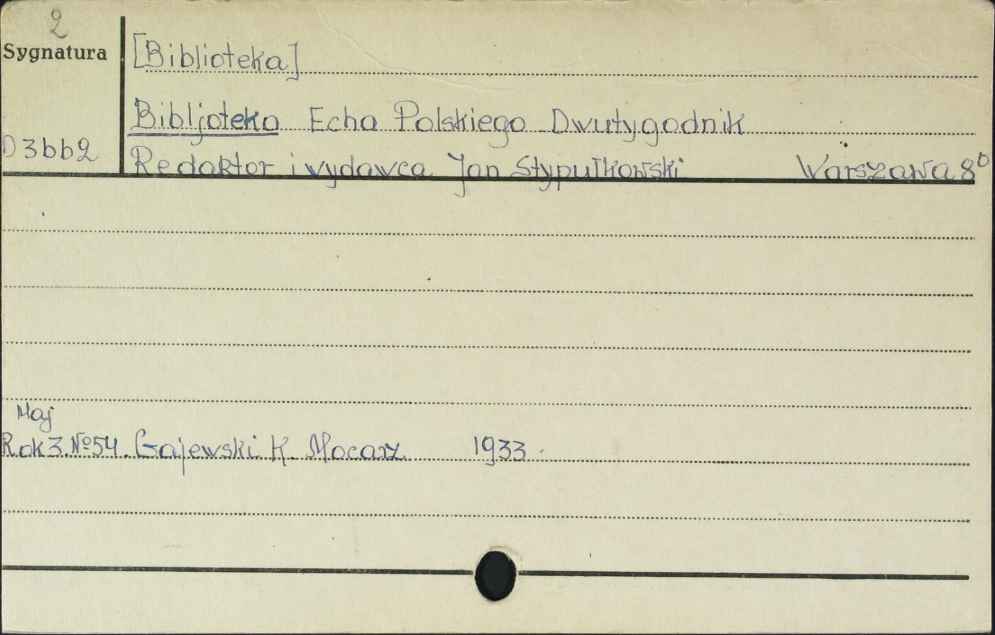 2
Sygnatura
[Biblioteka]
Bibljoteka Echa Polskiego Dwutygodnik
D3bb2
Redaktor i wydawca Jan Stypułkowski Warszawa 8°
Maj
Rok 3. No 54. Gajewski K. Mocarz 1933.